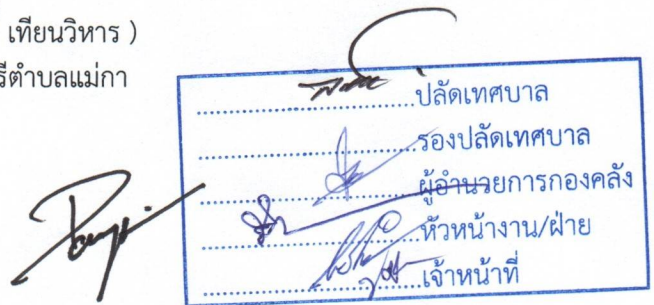 เทียนวิหาร )
รีตำบลแม่กา
....................ปลัดเทศบาล
....................รองปลัดเทศบาล
....................ผู้อำนวยการกองคลัง
....................หัวหน้างาน/ฝ่าย
....................เจ้าหน้าที่